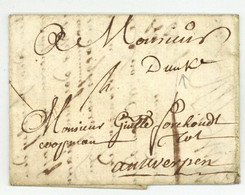 A Monsieur
Monsieur Guille Forchoudt
Coopman tot
antwerpen